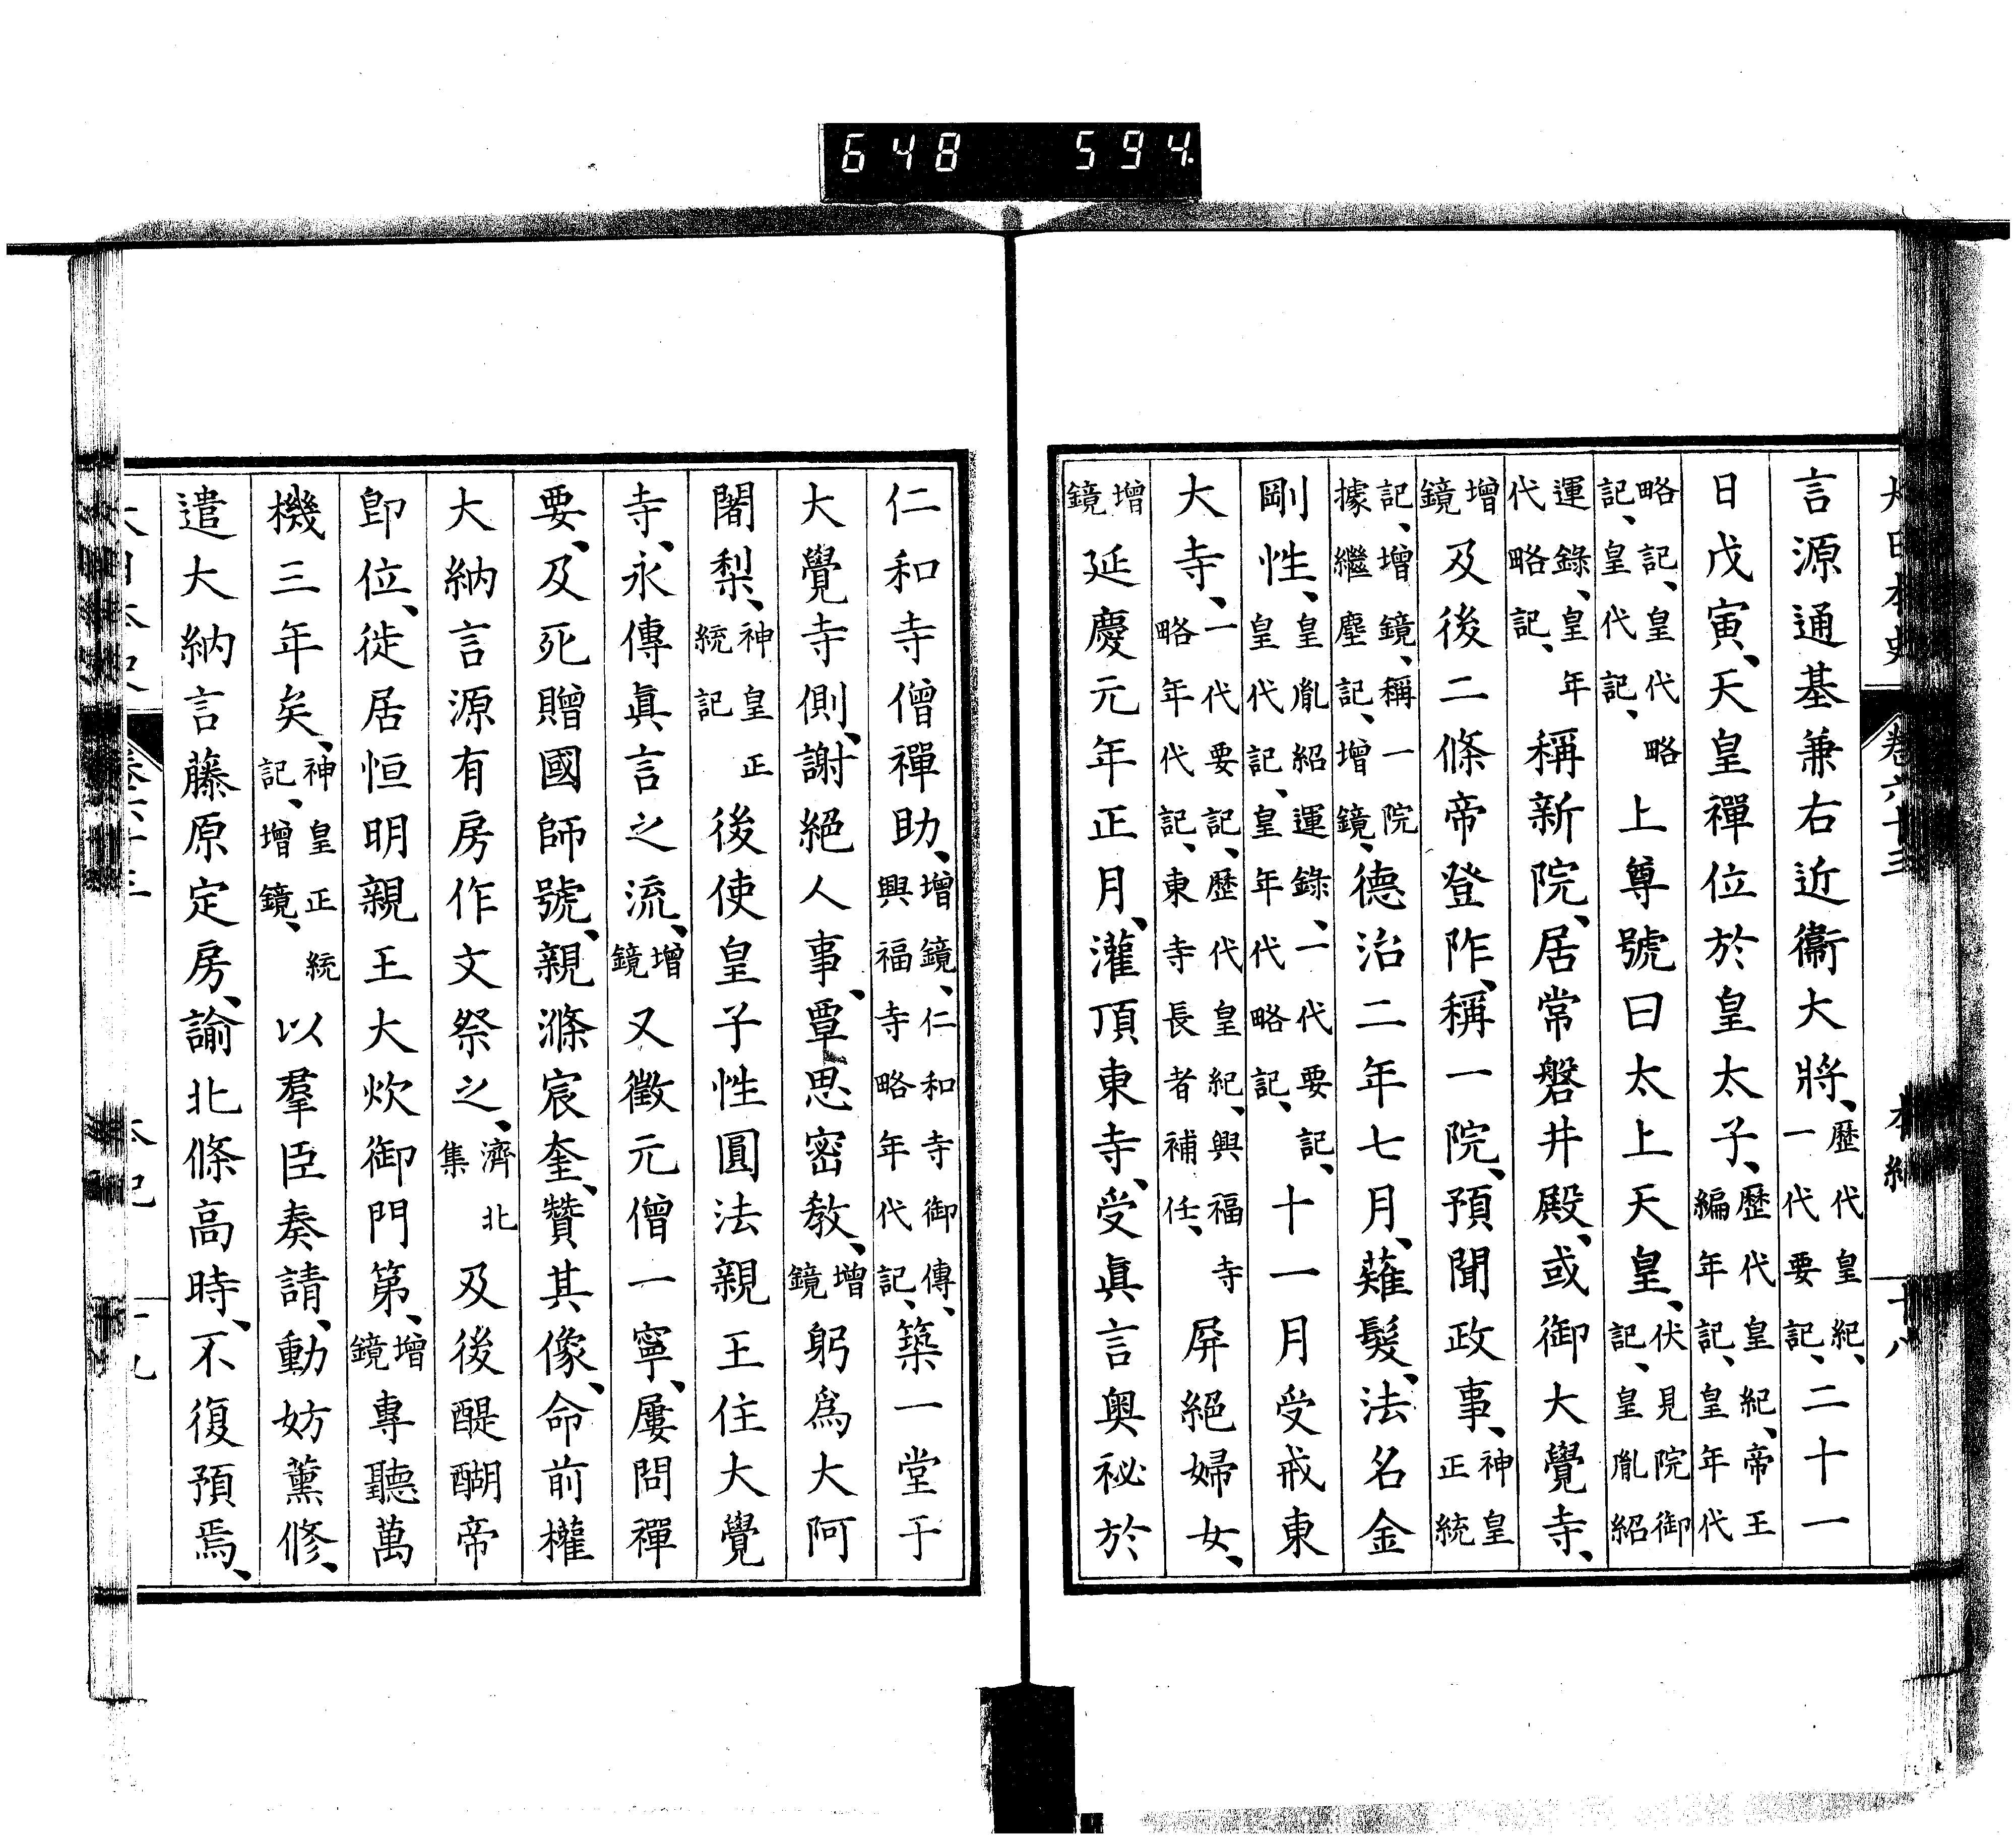 大日本史 卷六十三 本紀 十八
言源通基兼右近衞大將、歷代皇紀、一代要記、二十一
日戊寅、天皇禪位於皇太子、歷代皇紀、帝王編年記、皇年代
略記、皇代略記、皇代記、上尊號曰太上天皇、伏見院御記、皇胤紹
運錄、皇年代略記、稱新院、居常磐井殿、或御大覺寺、
增鏡及後二條帝登阼、稱一院、預聞政事、神皇正統
記、增鏡、稱一院據繼塵記、增鏡、德治二年七月、薙髮、法名金
剛性、皇胤紹運錄、一代要記、皇代記、皇年代略記、十一月受戒東
大寺、一代要記、歷代皇紀、興福寺略年代記、東寺長者補任、屏絕婦女、
增鏡延慶元年正月、灌頂東寺、受眞言奧秘於
仁和寺僧禪助、增鏡、仁和寺御傳、興福寺略年代記、築一堂于
大覺寺側、謝絕人事、覃思密敎、增鏡躬爲大阿
闍梨、神皇正統記後使皇子性圓法親王住大覺
寺、永傳眞言之流、增鏡又徵元僧一寧、屢問禪
要、及死贈國師號、親滌宸奎、贊其像、命前權
大納言源有房作文祭之、濟北集及後醍醐帝
卽位、徙居恒明親王大炊御門第、增鏡專聽萬
機三年矣、神皇正統記、增鏡、以羣臣奏請、動妨薰修、
遣大納言藤原定房、諭北條高時、不復預焉、
大日本史 卷六十三 本紀 十九
648 594